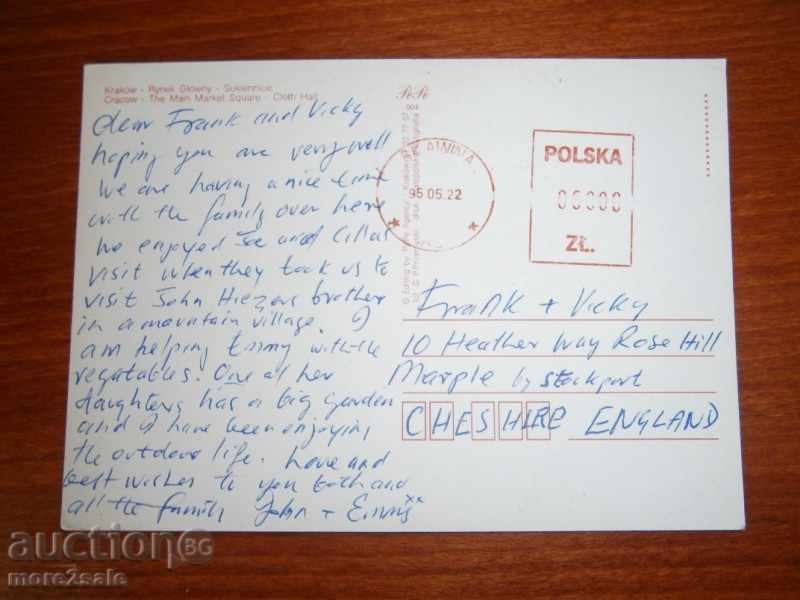 Kraków - Rynek Główny - Sukiennice
Cracow - The Main Market Square - Cloth Hall
dear Frank and Vicky
hoping you are very well
we are having a nice time
with the family over here
we enjoyed Joe and Cillas
visit when they took us to
visit John brother
in a mountain village. I
am helping with the
vegatables. One of her
daughters has a big garden
and I have been enjoying
the outdoor life. Love and
best wishes to you both and
all the family John +
95.05.22
POLSKA
06000
ZŁ.
Frank + Vicky
10 Heather Way Rose Hill
Marple by Stockport
CHESHIRE ENGLAND
auction BG
more2sale